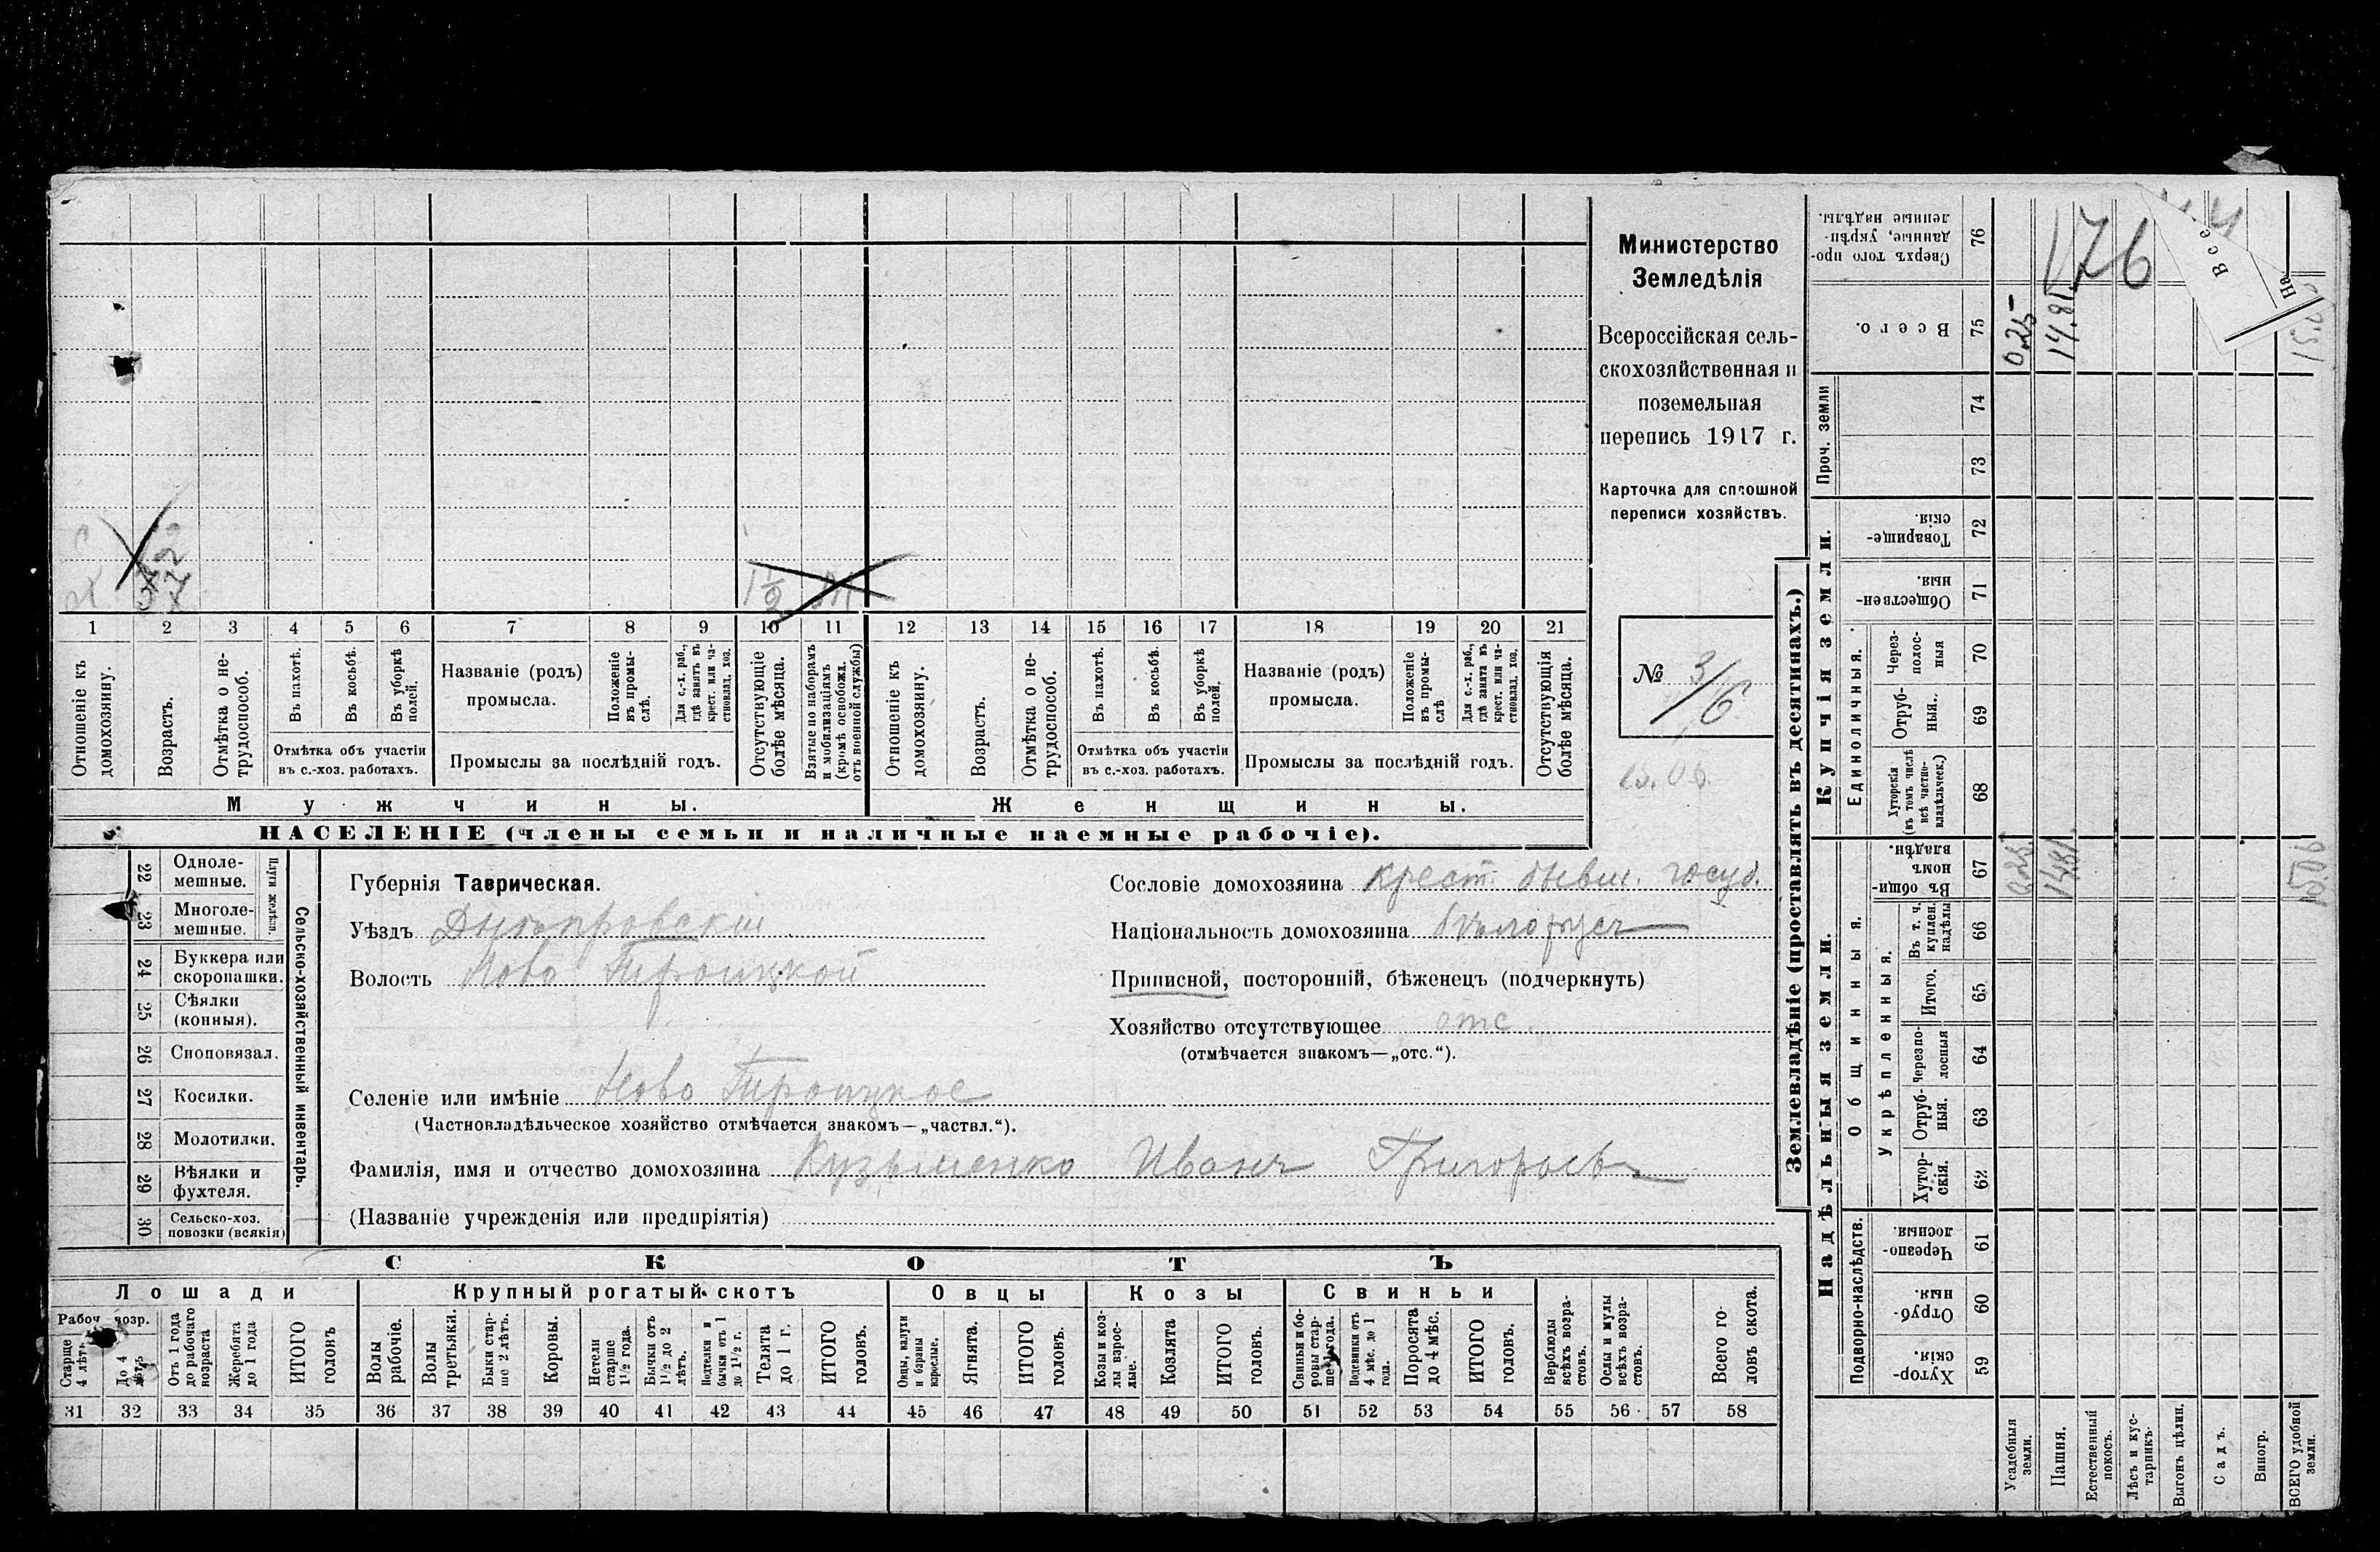 Министерство
Земледѣлія
Всероссійская сель-
скохозяйственная и
поземельная
перепись 1917 г.
Карточка для сплошной
переписи хозяйствъ.
№ 3/6
1 2 3 4 5 6 7 8 9 10 11 12 13 14 15 16 17 18 19 20 21
Отношеніе къ домохозяину.
Возрастъ.
Отмѣтка о не-трудоспособ.
Въ пахотѣ.
Въ косьбѣ.
Въ уборкѣ полей.
Отмѣтка объ участіи
въ с.-хоз. работахъ.
Названіе (родъ)
промысла.
Положеніе въ промы-слѣ.
Для с.-х. раб., гдѣ занятъ въ крест. или ча-стновлад. хоз.
Промыслы за послѣдній годъ.
Отсутствующіе болѣе мѣсяца.
1½
Взятые по наборамъ и мобилизаціямъ (кромѣ освобожд. отъ военной службы)
Отношеніе къ домохозяину.
Возрастъ.
Отмѣтка о не-трудоспособ.
Въ пахотѣ.
Въ косьбѣ.
Въ уборкѣ полей.
Отмѣтка объ участіи
въ с.-хоз. работахъ.
Названіе (родъ)
промысла.
Положеніе въ промы-слѣ
Для с.-х. раб., гдѣ занята въ крест. или ча-стновлад. хоз.
Промыслы за послѣдній годъ.
Отсутствующія болѣе мѣсяца.
Мужчины.
Женщины.
НАСЕЛЕНІЕ (члены семьи и наличные наемные рабочіе).
Сельско-хозяйственный инвентарь.
Плуги желѣзн.
22 Однолемешные.
23 Многолемешные.
24 Буккера или скоропашки.
25 Сѣялки (конныя).
26 Сноповязал.
27 Косилки.
28 Молотилки.
29 Вѣялки и фухтеля.
30 Сельско-хоз. повозки (всякія)
Губернія Таврическая.
Уѣздъ Днѣпровскій
Волость Ново Троицкой
Селеніе или имѣніе Ново Троицкое
(Частновладѣльческое хозяйство отмѣчается знакомъ—„частвл.“).
Фамилія, имя и отчество домохозяина Кузьменко Иванъ Григорьевъ
(Названіе учрежденія или предпріятія)
Сословіе домохозяина крест. бывш. госуд.
Національность домохозяина бѣлорусъ
Приписной, посторонній, бѣженецъ (подчеркнуть)
Хозяйство отсутствующее отс.
(отмѣчается знакомъ—„отс.“).
СКОТЪ
Лошади
Крупный рогатый скотъ
Овцы
Козы
Свиньи
Рабоч. возр.
Старше 4 лѣтъ
До 4 лѣтъ
Отъ 1 года до рабочаго возраста
Жеребята до 1 года
ИТОГО головъ
Волы рабочіе.
Волы третьяки.
Быки стар-ше 2 лѣтъ.
Коровы.
Нетели старше 1½ года.
Бычки отъ 1½ до 2 лѣтъ.
Подтелки и бычки отъ 1 до 1½ г.
Телята до 1 г.
ИТОГО головъ.
Овцы, валухи и бараны взрослые.
Ягнята.
ИТОГО головъ.
Козы и коз-лы взрос-лые.
Козлята
ИТОГО головъ.
Свиньи и бо-ровы стар-ше 1 года.
Подсвинки отъ 4 мѣс. до 1 года.
Поросята до 4 мѣс.
ИТОГО головъ.
Верблюды всѣхъ возра-стовъ.
Ослы и мулы всѣхъ возра-стовъ.
Всего го-ловъ скота.
31 32 33 34 35 36 37 38 39 40 41 42 43 44 45 46 47 48 49 50 51 52 53 54 55 56 57 58
Землевладѣніе (проставлять въ десятинахъ.)
176
Сверхъ того про-данные, укрѣп-ленные надѣлы. 76
Всего. 75 0,25 14.81 15.06
Проч. земли
74
73
Купчія земли.
Товарище-скія. 72
Обществен-ныя. 71
Единоличныя.
Через-полос-ныя 70
Отруб-ныя. 69
Хуторскія (въ томъ числѣ всѣ частно-владѣльческ.) 68
Надѣльныя земли.
Общинныя.
Въ общин-номъ владѣн. 67 0.25 14.81 15.06
Укрѣпленныя.
Въ т. ч. куплен. надѣлы 66
Итого. 65
Черезпо-лосныя 64
Отруб-ныя. 63
Хутор-скія. 62
Подворно-наслѣдств.
Черезпо-лосныя. 61
Отруб-ныя. 60
Хутор-скія. 59
Усадебныя земли.
Пашня.
Естественный покосъ.
Лѣсъ и кус-тарникъ.
Выгонъ цѣлин.
Садъ.
Виногр.
ВСЕГО удобной земли.